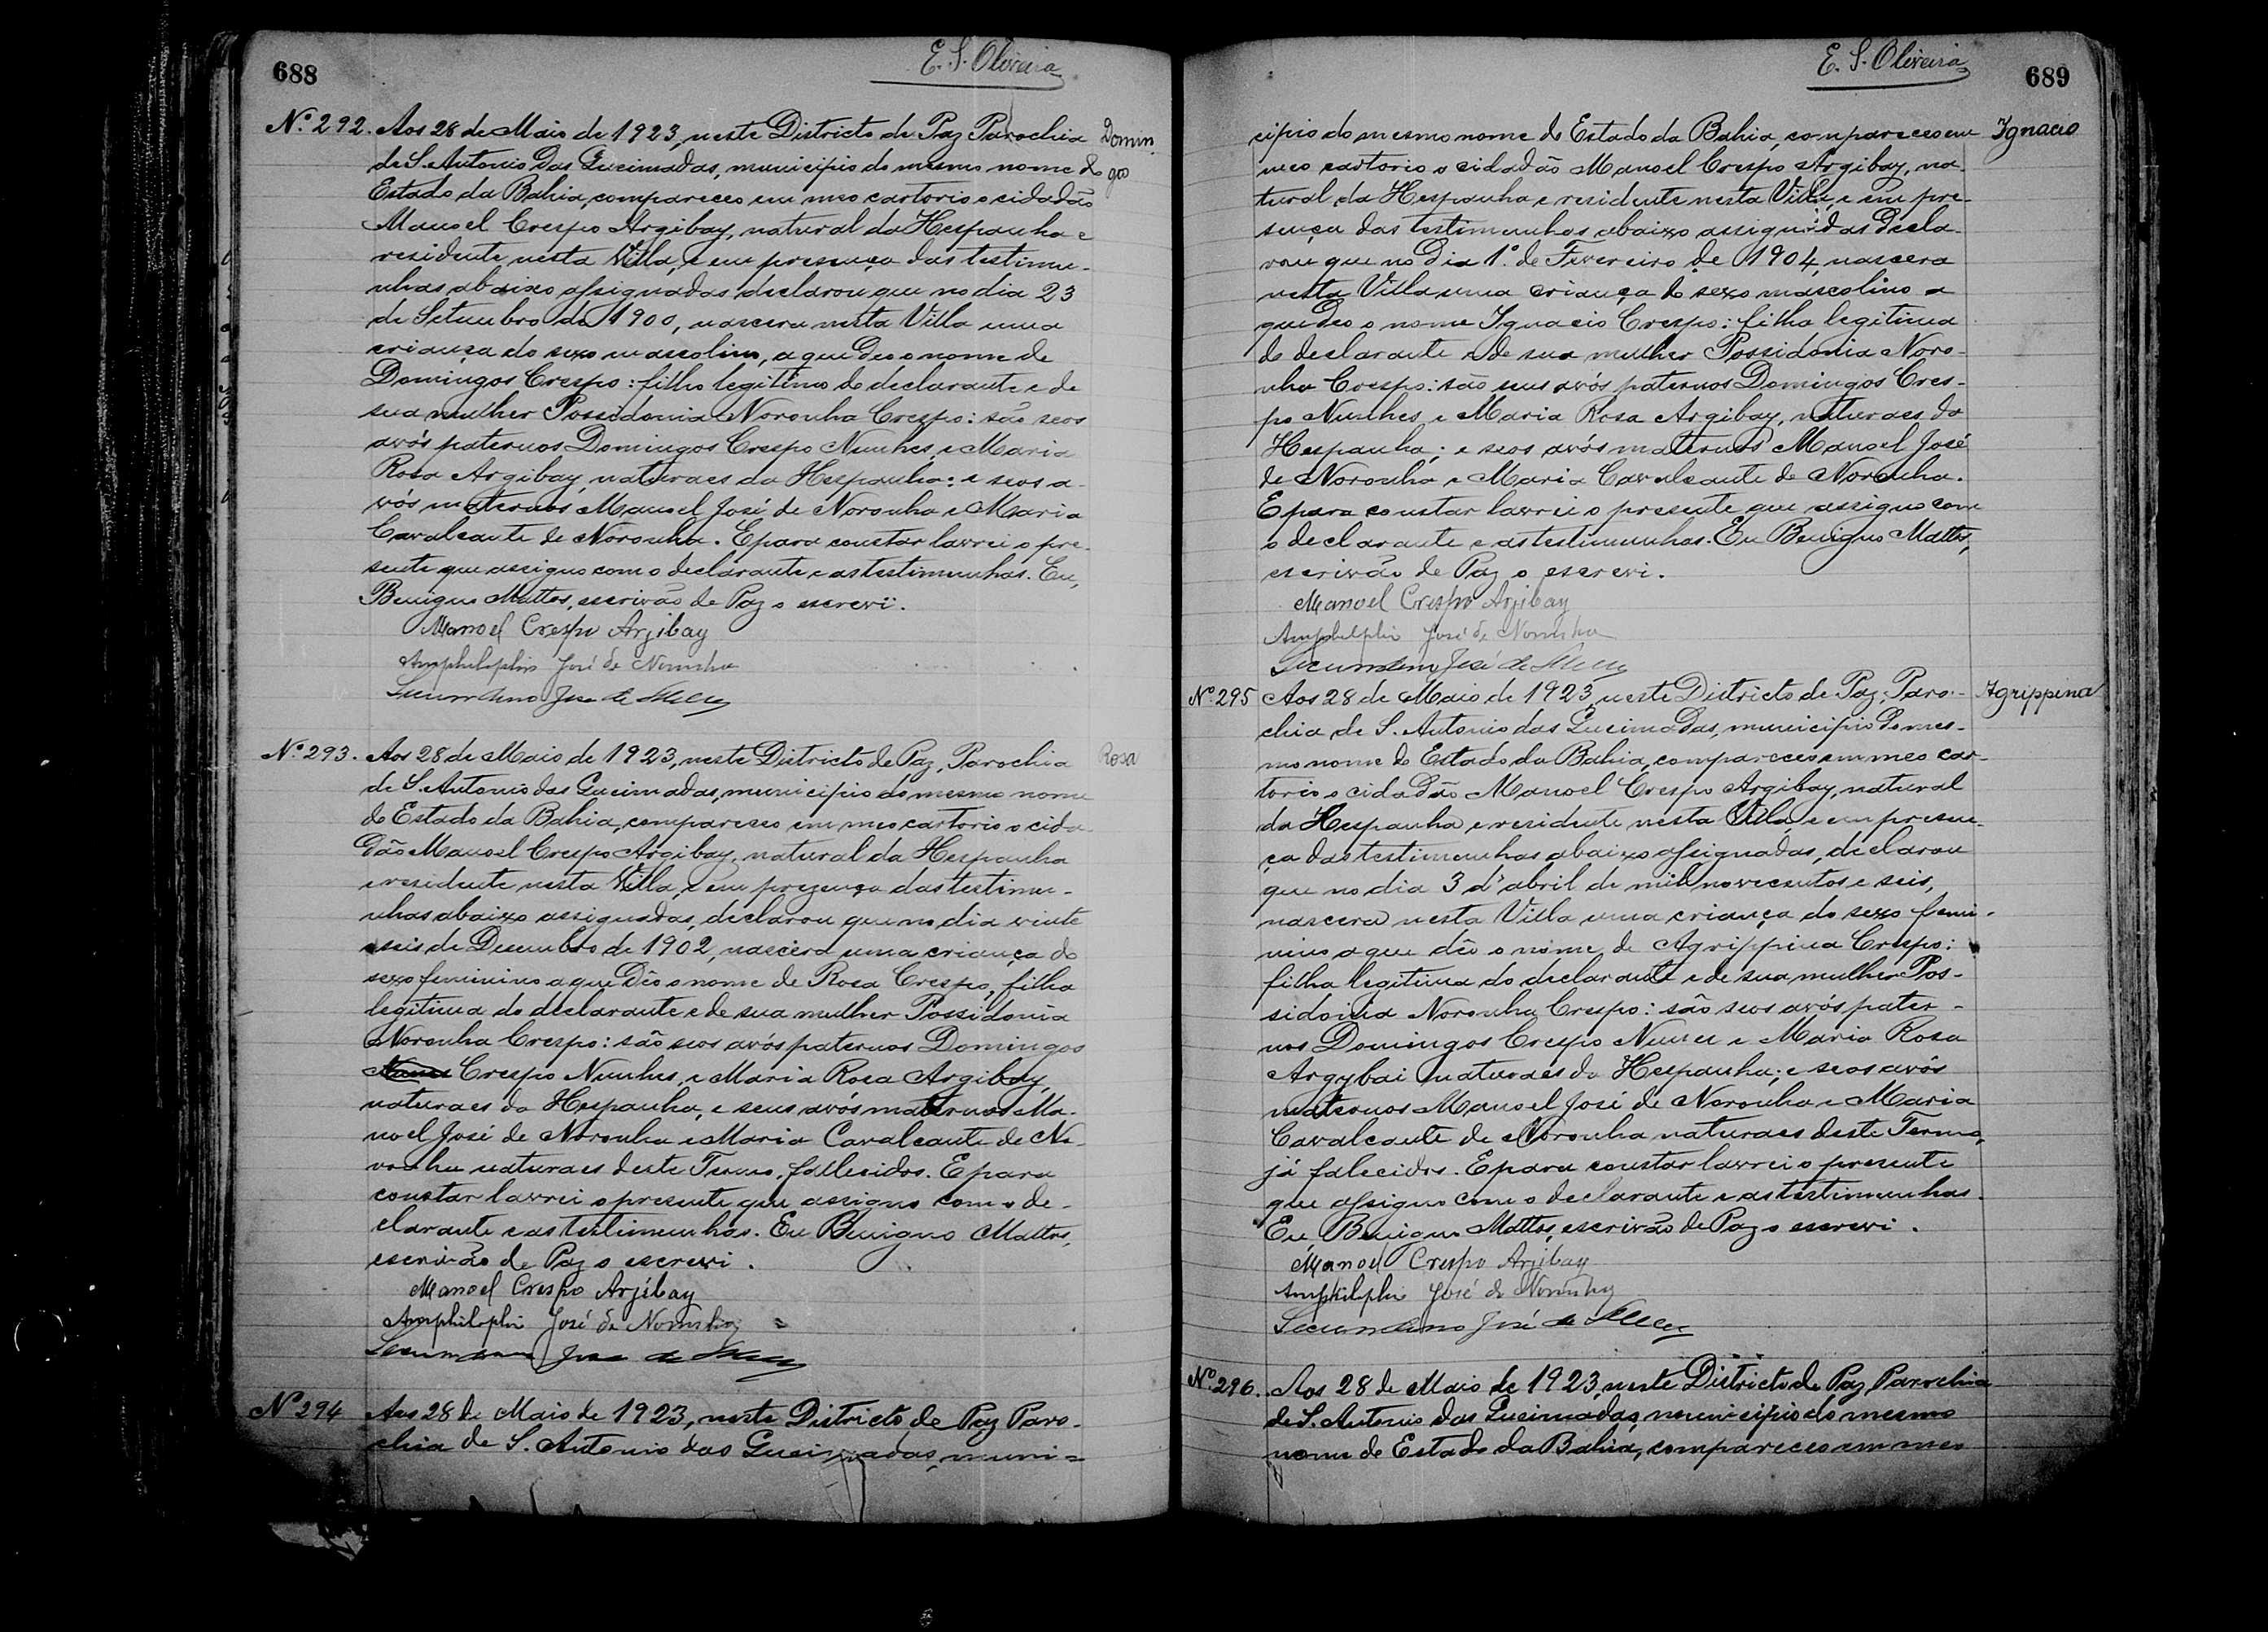 688
E. S. Oliveira
Nº 292. Aos 28 de Maio de 1923, neste Districto de Paz Parochia
Domin
de S. Antonio das Queimadas, municipio do mesmo nome do
gos
Estado da Bahia, compareceo em meo cartorio o cidadão
Manoel Crespo Argibay, natural da Hespanha e
residente nesta Villa, e em presença das testimu-
nhas abaixo assignadas declarou que no dia 23
de Setembro de 1900, nascera nesta Villa uma
criança do sexo mascolino, a que deo o nome de
Domingos Crespo: filho legitimo do declarante e de
sua mulher Possidonia Noronha Crespo: são seos
avós paternos Domingos Crespo Nunhes, e Maria
Rosa Argibay, naturaes da Hespanha: e seos a-
vós maternos Manoel José de Noronha e Maria
Cavalcante de Noronha. E para constar lavrei o pre-
sente que assigno com o declarante e as testimunhas. Eu,
Benigno Mattos, escrivão de Paz o escrevi.
Manoel Crespo Arjibay
Amphilophio José de Noronha
José de
Nº 293. Aos 28 de Maio de 1923, neste Districto de Paz, Parochia
Rosa
de S. Antonio das Queimadas, municipio do mesmo nome
do Estado da Bahia, compareceo em meo cartorio o cida-
dão Manoel Crespo Argibay, natural da Hespanha
e residente nesta Villa, e em prezença das testimu-
nhas abaixo assignadas, declarou que no dia vinte
e seis de Desembro de 1902, nascera uma criança do
sexo feminino a que deo o nome de Rosa Crespo, filha
legitima do declarante e de sua mulher Possidonia
Noronha Crespo: são seos avós paternos Domingos
Crespo Nunhes, e Maria Rosa Argibay,
naturaes da Hespanha, e seus avós maternos Ma-
noel José de Noronha e Maria Cavalcante de No-
ronha naturaes deste Termo, fallecidos. E para
constar lavrei o presente que assigno com o de-
clarante e as testimunhas. Eu Benigno Mattos,
escrivão de Paz o escrevi.
Manoel Crespo Arjibay
Amphilophio José de Noronha
José de
Nº 294 Aos 28 de Maio de 1923, neste Districto de Paz Paro-
chia de S. Antonio das Queimadas, muni-
E. S. Oliveira
689
cipio do mesmo nome do Estado da Bahia, compareceo em
Ignacio
meo cartorio o cidadão Manoel Crespo Argibay, na-
tural da Hespanha e residente nesta Villa, e em pre-
sença das testimunhas abaixo assignadas decla-
rou que no dia 1º de Fevereiro de 1904, nascera
nesta Villa uma criança do sexo mascolino a
que deo o nome Ignacio Crespo: filho legitimo
do declarante e de sua mulher Possidonia Noro-
nha Crespo: são seus avós paternos Domingos Cres-
po Nunhes e Maria Rosa Argibay, naturaes da
Hespanha; e seos avós maternos Manoel José
de Noronha e Maria Cavalcante de Noronha.
E para constar lavrei o presente que assigno com
o declarante e as testimunhas. Eu Benigno Mattos,
escrivão de Paz o escrevi.
Manoel Crespo Arjibay
Amphilophio José de Noronha
José de
Nº 295 Aos 28 de Maio de 1923, neste Districto de Paz, Paro-
Agrippina
chia de S. Antonio das Queimadas, municipio do mes-
mo nome do Estado da Bahia, compareceo em meo car-
torio o cidadão Manoel Crespo Argibay, natural
da Hespanha e residente nesta Villa, e em presen-
ça das testimunhas abaixo assignadas, declarou
que no dia 3 d'abril de mil novecentos e seis,
nascera nesta Villa uma criança do sexo femi-
nino a que deo o nome de Agrippina Crespo:
filha legitima do declarante e de sua mulher Pos-
sidonia Noronha Crespo: são seos avós pater-
nos Domingos Crespo Nunes e Maria Rosa
Argybai naturaes da Hespanha; e seos avós
maternos Manoel José de Noronha e Maria
Cavalcante de Noronha naturaes deste Termo,
já falecidos. E para constar lavrei o presente
que assigno com o declarante e as testimunhas.
Eu, Benigno Mattos, escrivão de Paz o escrevi.
Manoel Crespo Arjibay
Amphilophio José de Noronha
José de
Nº 296. Aos 28 de Maio de 1923, neste Districto de Paz, Parochia
de S. Antonio das Queimadas, municipio do mesmo
nome do Estado da Bahia, compareceo em meo